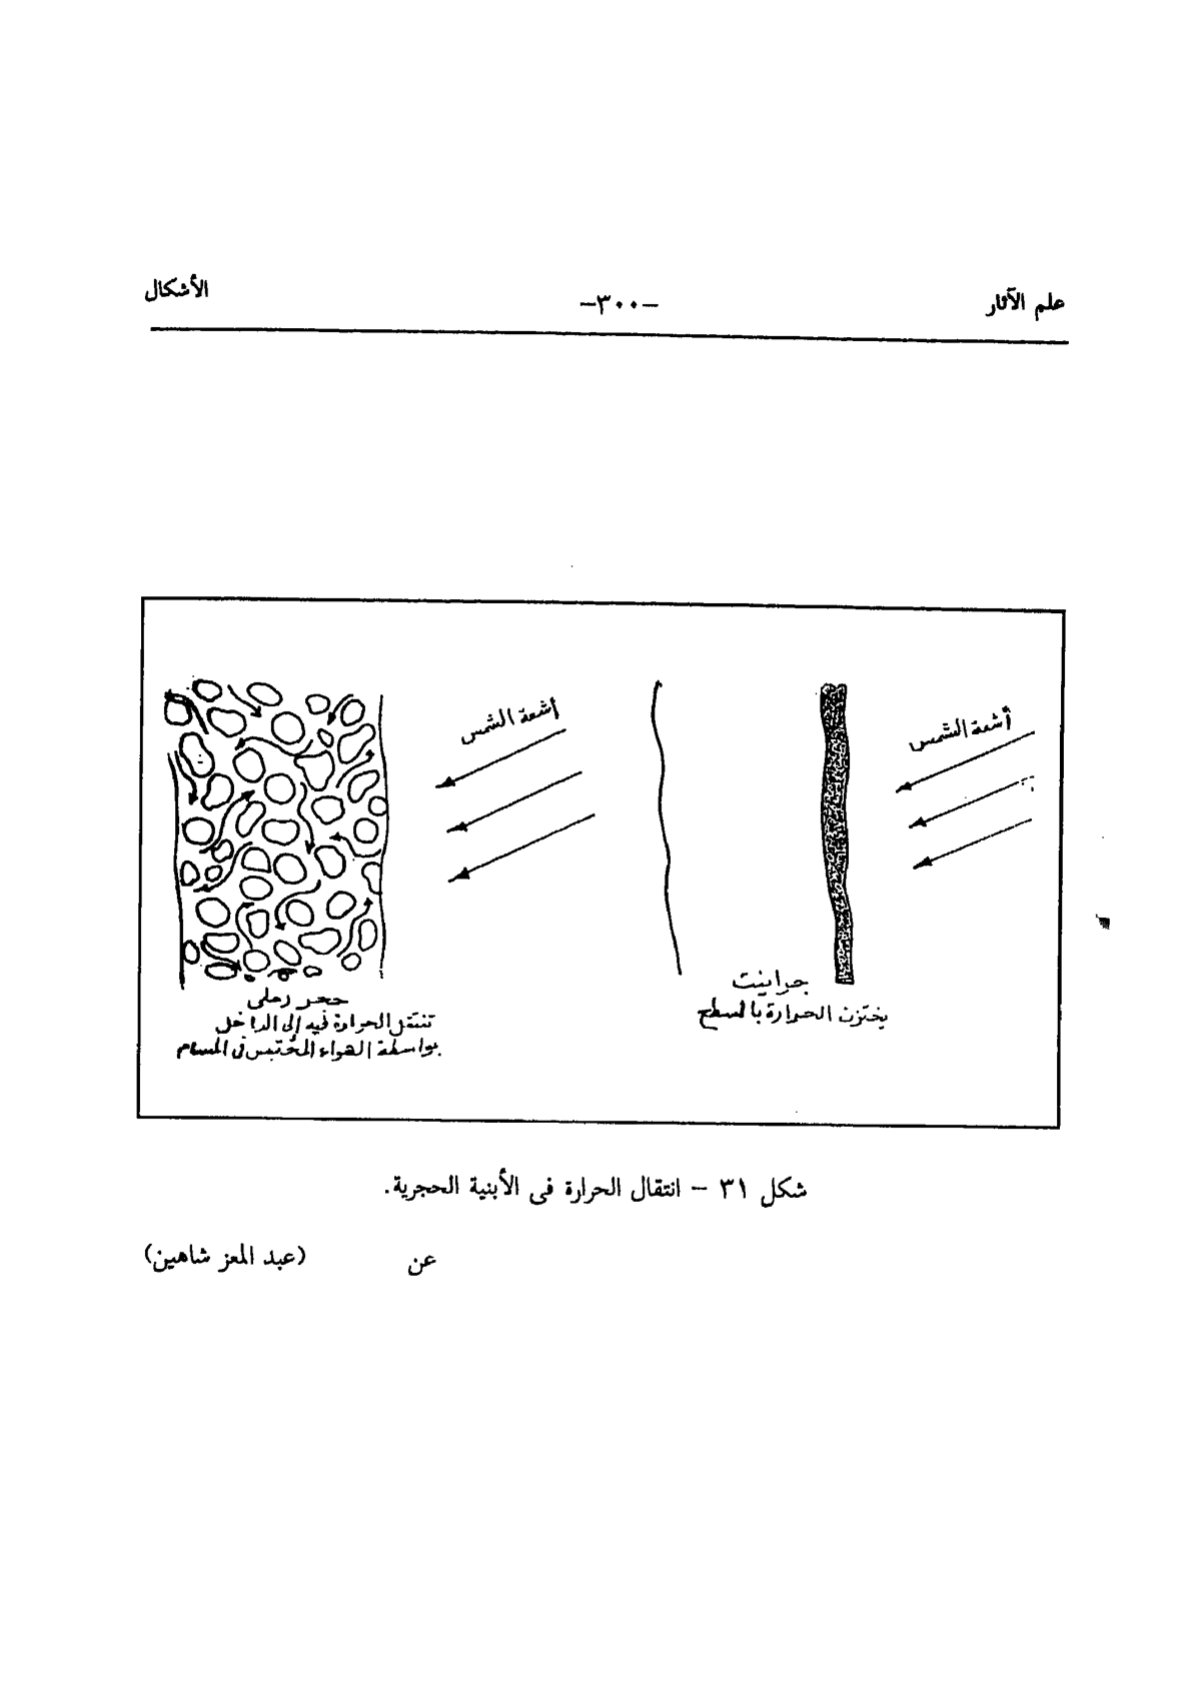 علم الآثار
-٣٠٠-
الأشكال
أشعة الشمس
أشعة الشمس
جرانيت
يختزن الحرارة بالسطح
حجر رملى
تنتقل الحرارة فيه إلى الداخل
بواسطة الهواء المحتبس فى المسام
شكل ٣١ - انتقال الحرارة فى الأبنية الحجرية.
عن (عبد المعز شاهين)